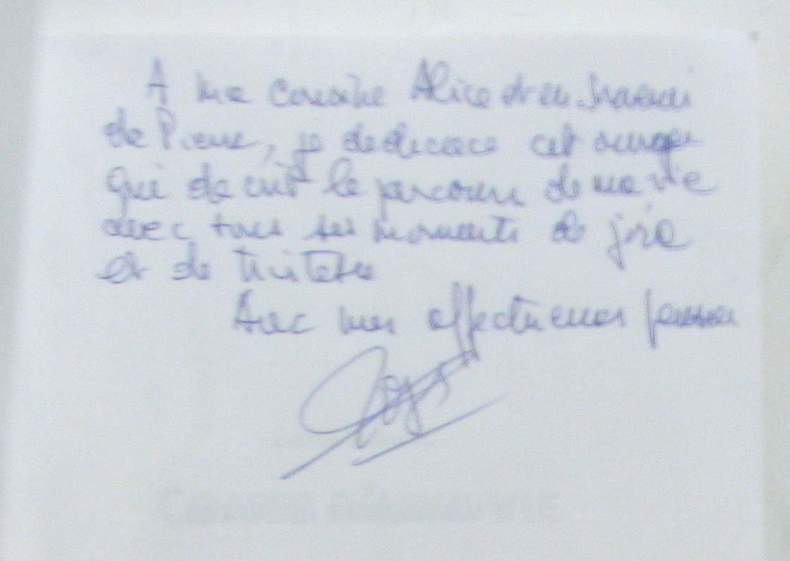 A ma cousine Alice et en souvenir
de Pierre, je dédicace cet ouvrage
qui décrit le parcours de ma vie
avec tous ses moments de joie
et de tristesse
Avec mes affectueuses pensées